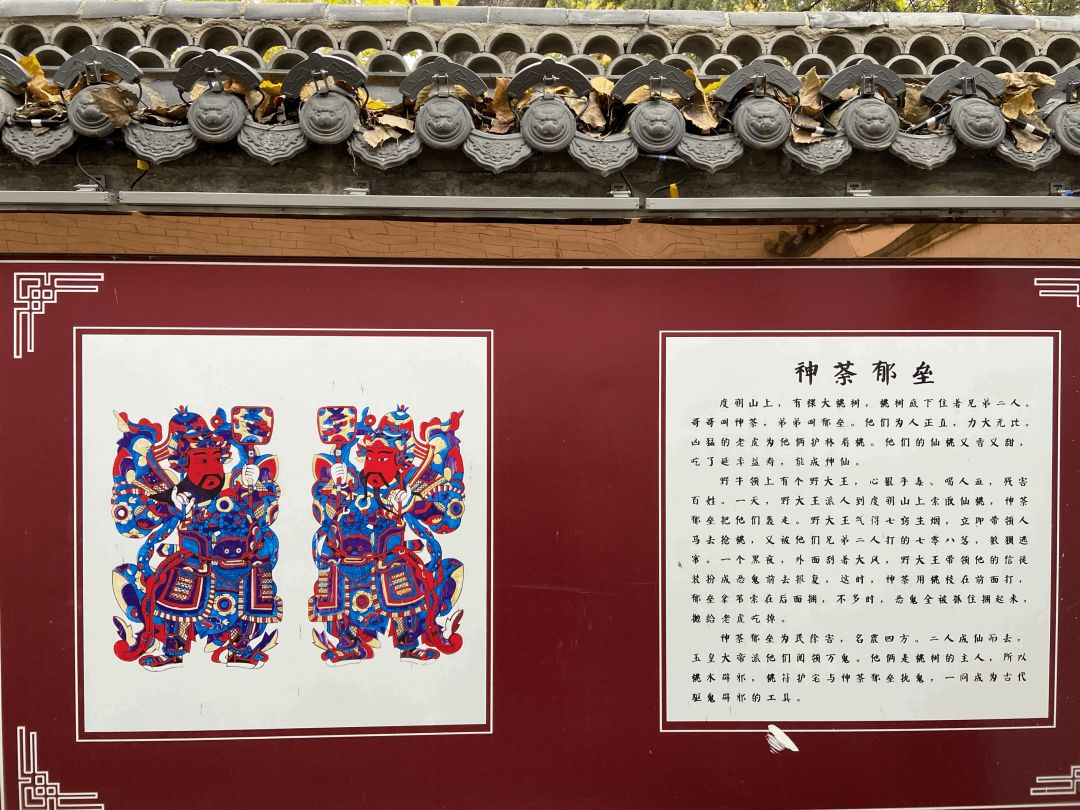 神荼郁垒
度朔山上，有棵大桃树，桃树底下住着兄弟二人。
哥哥叫神荼，弟弟叫郁垒。他们为人正直，力大无比。
凶猛的老虎为他俩护林看桃。他们的仙桃又香又甜，
吃了延年益寿，能成神仙。
野牛领上有个野大王，心狠手毒、喝人血，残害
百姓。一天，野大王派人到度朔山上索取仙桃，神荼
郁垒把他们轰走。野大王气得七窍生烟，立即带领人
马去抢桃，又被他们兄弟二人打的七零八落，狼狈逃
窜。一个黑夜，外面刮着大风，野大王带领他的信徒
装扮成恶鬼前去报复，这时，神荼用桃枝在前面打，
郁垒拿苇索在后面捆，不多时，恶鬼全被抓住捆起来，
抛给老虎吃掉。
神荼郁垒为民除害，名震四方。二人成仙而去，
玉皇大帝派他们阅领万鬼。他俩是桃树的主人，所以
桃木辟邪，桃符护宅与神荼郁垒执鬼，一同成为古代
驱鬼辟邪的工具。